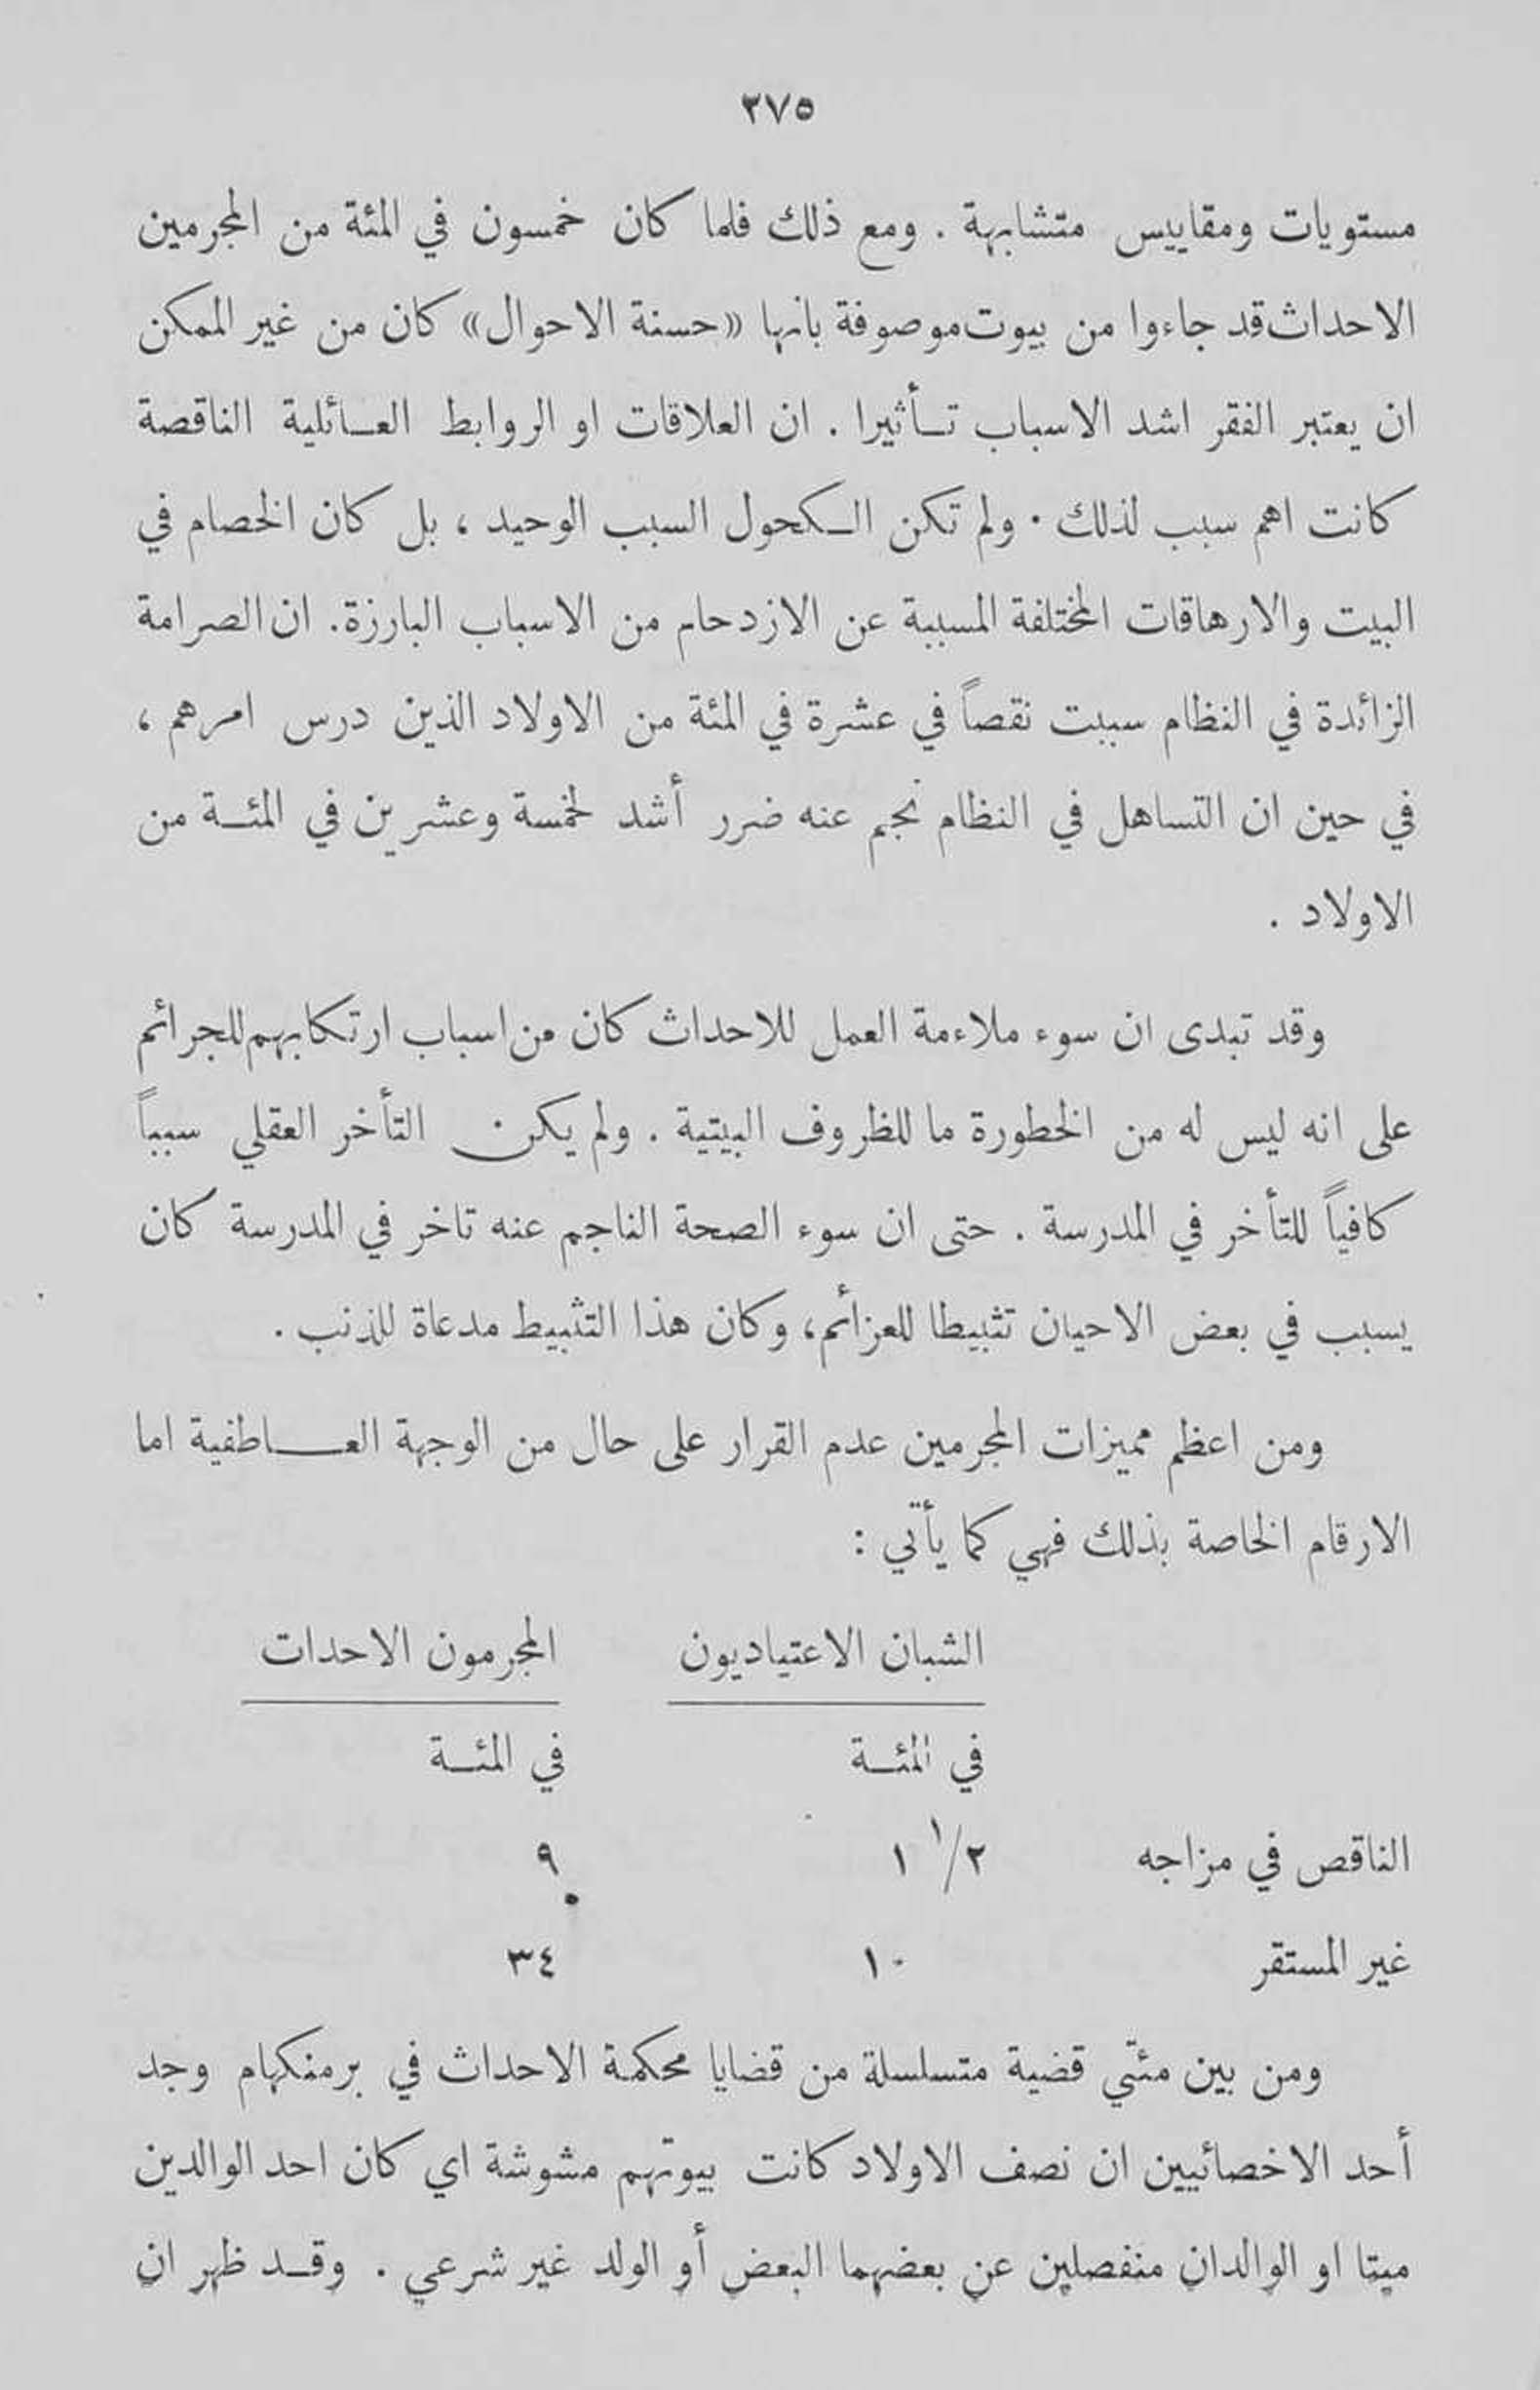 ٣٧٥
مستويات ومقاييس متشابهة . ومع ذلك فلما كان خمسون في المئة من المجرمين
الاحداث قد جاءوا من بيوت موصوفة بانها «حسنة الاحوال» كان من غير الممكن
ان يعتبر الفقر اشد الاسباب تأثيرا . ان العلاقات او الروابط العائلية الناقصة
كانت اهم سبب لذلك . ولم تكن الكحول السبب الوحيد ، بل كان الخصام في
البيت والارهاقات المختلفة المسببة عن الازدحام من الاسباب البارزة. ان الصرامة
الزائدة في النظام سببت نقصاً في عشرة في المئة من الاولاد الذين درس امرهم ،
في حين ان التساهل في النظام نجم عنه ضرر أشد لخمسة وعشرين في المئة من
الاولاد .
وقد تبدى ان سوء ملاءمة العمل للاحداث كان من اسباب ارتكابهم للجرائم
على انه ليس له من الخطورة ما للظروف البيتية . ولم يكن التأخر العقلي سبباً
كافياً للتأخر في المدرسة . حتى ان سوء الصحة الناجم عنه تاخر في المدرسة كان
يسبب في بعض الاحيان تثبيطا للعزائم، وكان هذا التثبيط مدعاة للذنب .
ومن اعظم مميزات المجرمين عدم القرار على حال من الوجهة العاطفية اما
الارقام الخاصة بذلك فهي كما يأتي :
الشبان الاعتياديون المجرمون الاحدات
في المئة في المئة
الناقص في مزاجه ١ ١/٢ ٩
غير المستقر ١٠ ٣٤
ومن بين مئتي قضية متسلسلة من قضايا محكمة الاحداث في برمنكهام وجد
أحد الاخصائيين ان نصف الاولاد كانت بيوتهم مشوشة اي كان احد الوالدين
ميتا او الوالدان منفصلين عن بعضهما البعض أو الولد غير شرعي . وقد ظهر ان